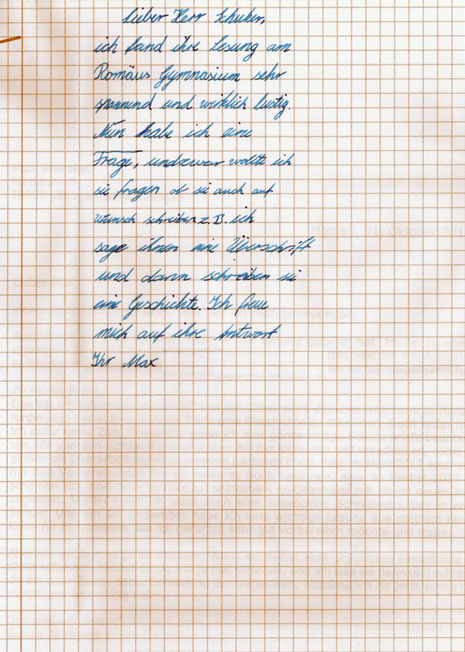 Lieber Herr Schuker,
ich fand ihre Lesung am
Romäus Gymnasium sehr
spannend und wirklich lustig.
Nun habe ich eine
Frage, undzwar wollte ich
sie fragen ob sie auch auf
wunsch schreiben z.B. ich
sage ihnen eine Überschrift
und dann schreiben sie
eine Geschichte. Ich freue
mich auf ihre Antwort
Ihr Max